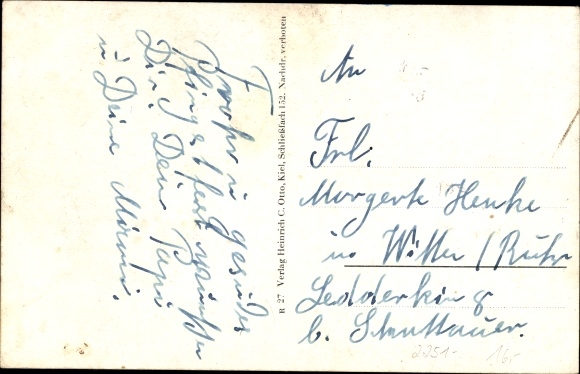 Frohe u. gesundes
Pfingstfest wünschen
Dir! Dein Papi
u. Deine Mami.
R 27 Verlag Heinrich C. Otto, Kiel, Schließfach 152. Nachdr. verboten
An
Frl.
Margerte Henke
in Witten / Ruhr
8
b. Schuttauer.
2251-